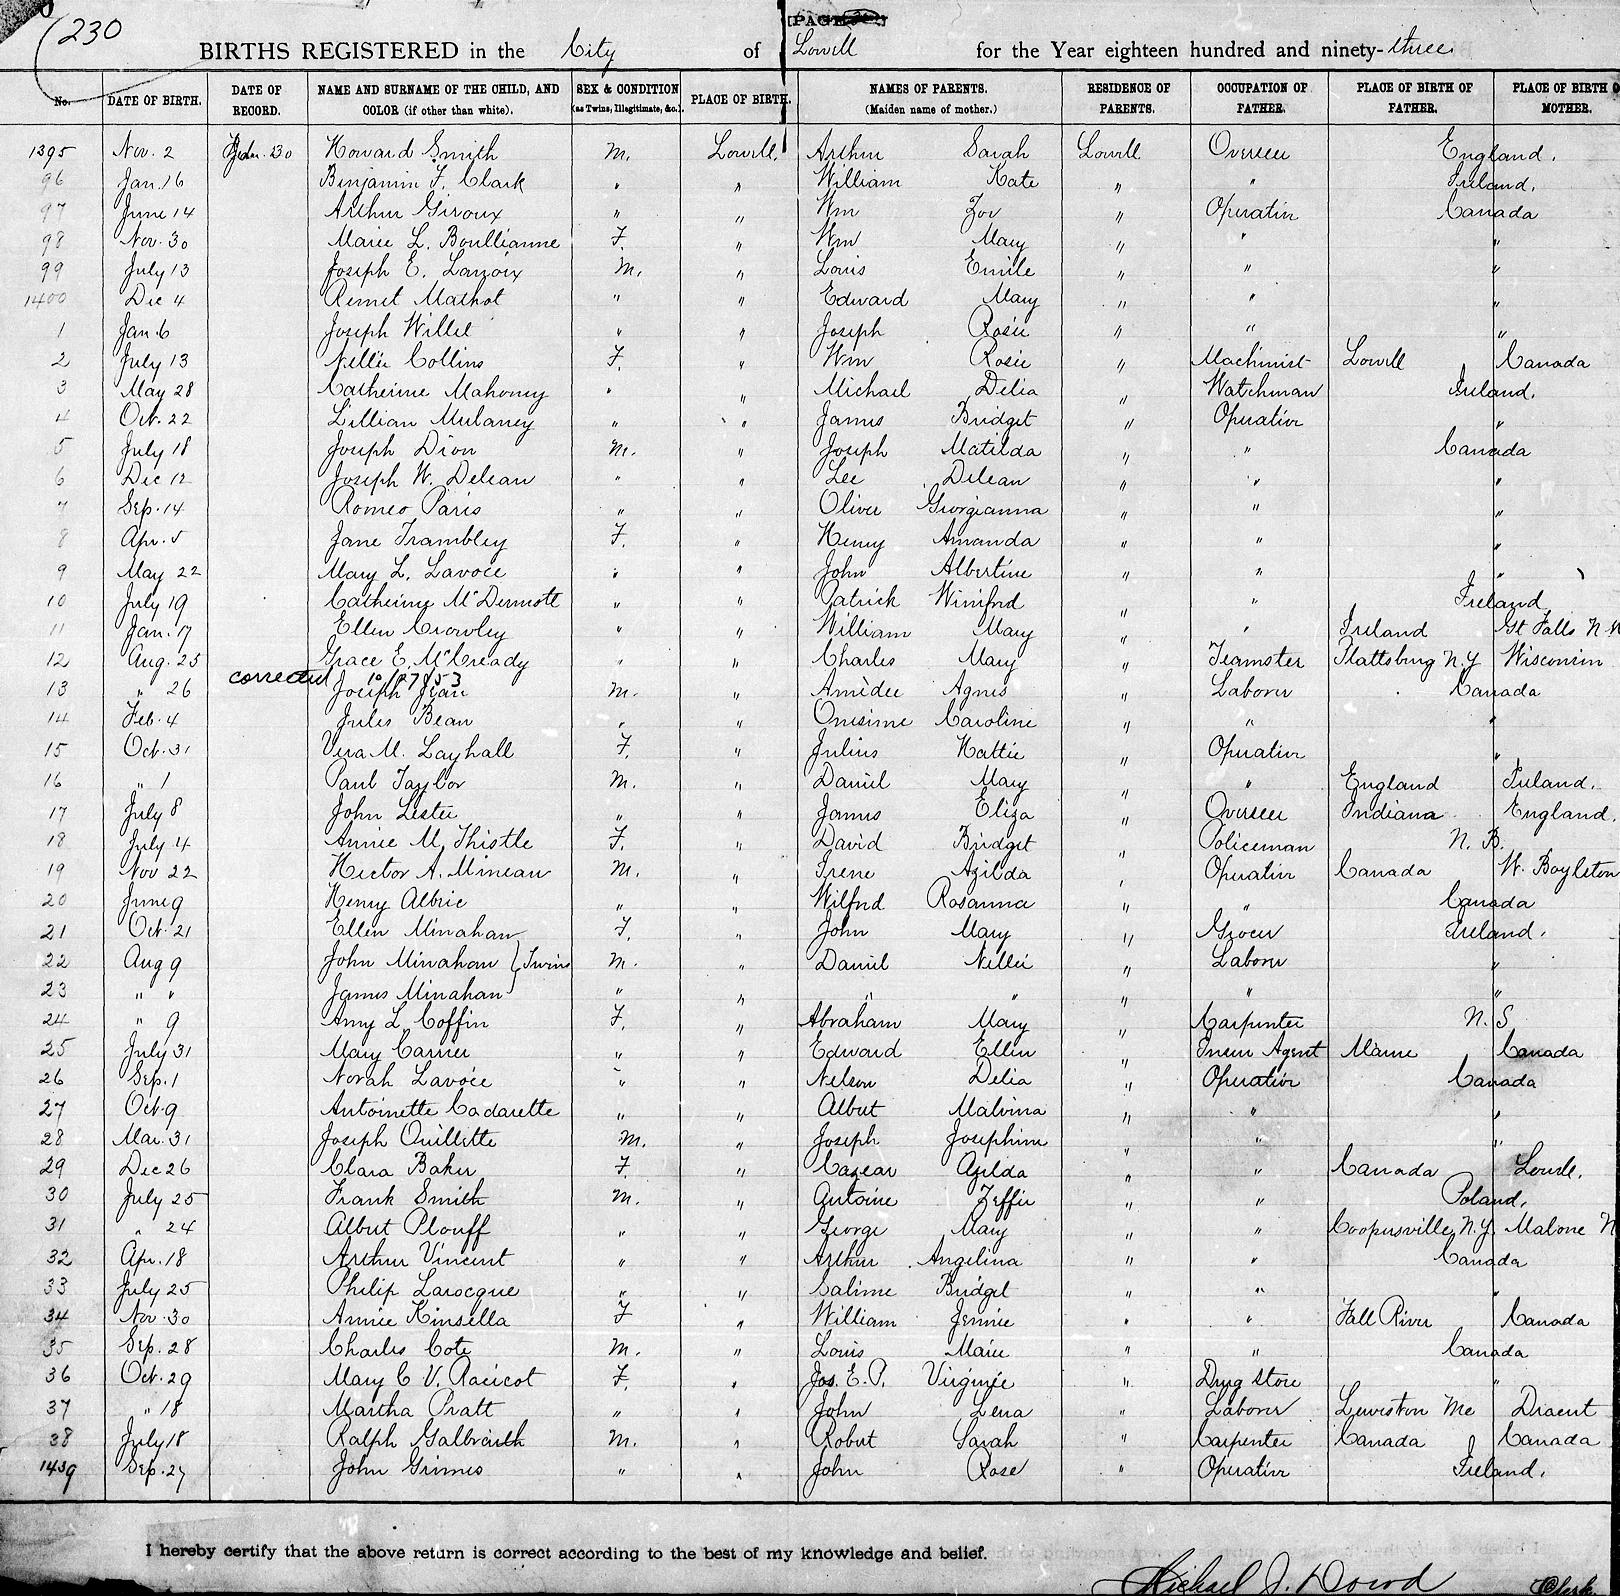 230
BIRTHS REGISTERED in the City of Lowell for the Year eighteen hundred and ninety-three
No. DATE OF BIRTH. DATE OF RECORD. NAME AND SURNAME OF THE CHILD, AND COLOR (if other than white). SEX & CONDITION (as Twins, Illegitimate, &c.) PLACE OF BIRTH. NAMES OF PARENTS. (Maiden name of mother.) RESIDENCE OF PARENTS. OCCUPATION OF FATHER. PLACE OF BIRTH OF FATHER. PLACE OF BIRTH OF MOTHER.
1395 Nov. 2 Howard Smith M. Lowell. Arthur Sarah Lowell Overseer England.
96 Jan. 16 Benjamin F. Clark " " William Kate " " Ireland.
97 June 14 Arthur Giroux " " Wm " Operative Canada
98 Nov. 30 Marie L. Boullianne F. " Wm Mary " " "
99 July 13 Joseph E. M. " Louis Emile " " "
1400 Dec 4 " " Edward Mary " " "
1 Jan. 6 Joseph Willie " " Joseph Rosie " " "
2 July 13 Nellie Collins F. " Wm Rosie " Machinist Lowell Canada
3 May 28 Catherine Mahoney " " Michael Delia " Watchman Ireland.
4 Oct. 22 Lillian Mulaney " " James Bridget " Operative "
5 July 18 Joseph Dion M. " Joseph Matilda " " Canada
6 Dec 12 Joseph W. Delean " " Lee Delean " " "
7 Sep. 14 Romeo Paris " " Oliver Georgianna " " "
8 Apr. 5 Jane Trambley F. " Henry Amanda " " "
9 May 22 Mary L. Lavoie " " John Albertine " " "
10 July 19 Catherine McDermott " " Patrick Winifred " " Ireland
11 Jan. 17 Ellen Crowley " " William Mary " " Ireland Gt Falls N H
12 Aug. 25 Grace E. McCready " " Charles Mary " Teamster Plattsburg N.Y Wisconsin
corrected 10/27/53
13 " 26 Joseph Jean M. " Amedee Agnes " Laborer Canada
14 Feb. 4 Jules Bean " " Onesime Caroline " " "
15 Oct. 31 Vera M. Layhall F. " Julius Hattie " Operative "
16 " 1 Paul Taylor M. " Daniel Mary " " England Ireland.
17 July 8 John Lester " " James Eliza " Overseer Indiana England.
18 July 4 Annie M. Thistle F. " David Bridget " Policeman N. B.
19 Nov 22 Hector A. Minean M. " Irene Azilda " Operative Canada W. Boylston
20 June 9 Henry Albric " " Wilfred Rosanna " " Canada
21 Oct. 21 Ellen Minahan F. " John Mary " Grocer Ireland.
22 Aug 9 John Minahan } Twins M. " Daniel Nellie " Laborer "
23 " " James Minahan " " " " " " "
24 " 9 Amy L. Coffin F. " Abraham Mary " Carpenter N. S
25 July 31 Mary Carrier " " Edward Ellen " Insur Agent Maine Canada
26 Sep. 1 Norah Lavoie " " Nelson Delia " Operative Canada
27 Oct. 9 Antoinette Cadarette " " Albert Malvina " " "
28 Mar. 31 Joseph Ouillette M. " Joseph Josephine " " "
29 Dec 26 Clara Baker F. " Azilda " " Canada Lowell.
30 July 25 Frank Smith M. " Antoine Zeffie " " Poland.
31 " 24 Albert Plouff " " George Mary " " Coopersville N.Y. Malone N
32 Apr. 18 Arthur Vincent " " Arthur Angelina " " Canada
33 July 25 Philip Larocque " " Calime Bridget " " "
34 Nov. 30 Annie Kinsella F " William Jennie " " Fall River Canada
35 Sep. 28 Charles Cote M. " Louis Marie " " Canada
36 Oct. 29 Mary C V. Racicot F. " Jos. E. P. Virginie " Drug store "
37 " 18 Martha Pratt " " John Lena " Laborer Lewiston Me Dracut
38 July 18 Ralph Galbraith M. " Robert Sarah " Carpenter Canada Canada
1439 Sep. 27 John Grimes " " John Rose " Operative Ireland.
I hereby certify that the above return is correct according to the best of my knowledge and belief.
Michael J. Dowd Clerk.